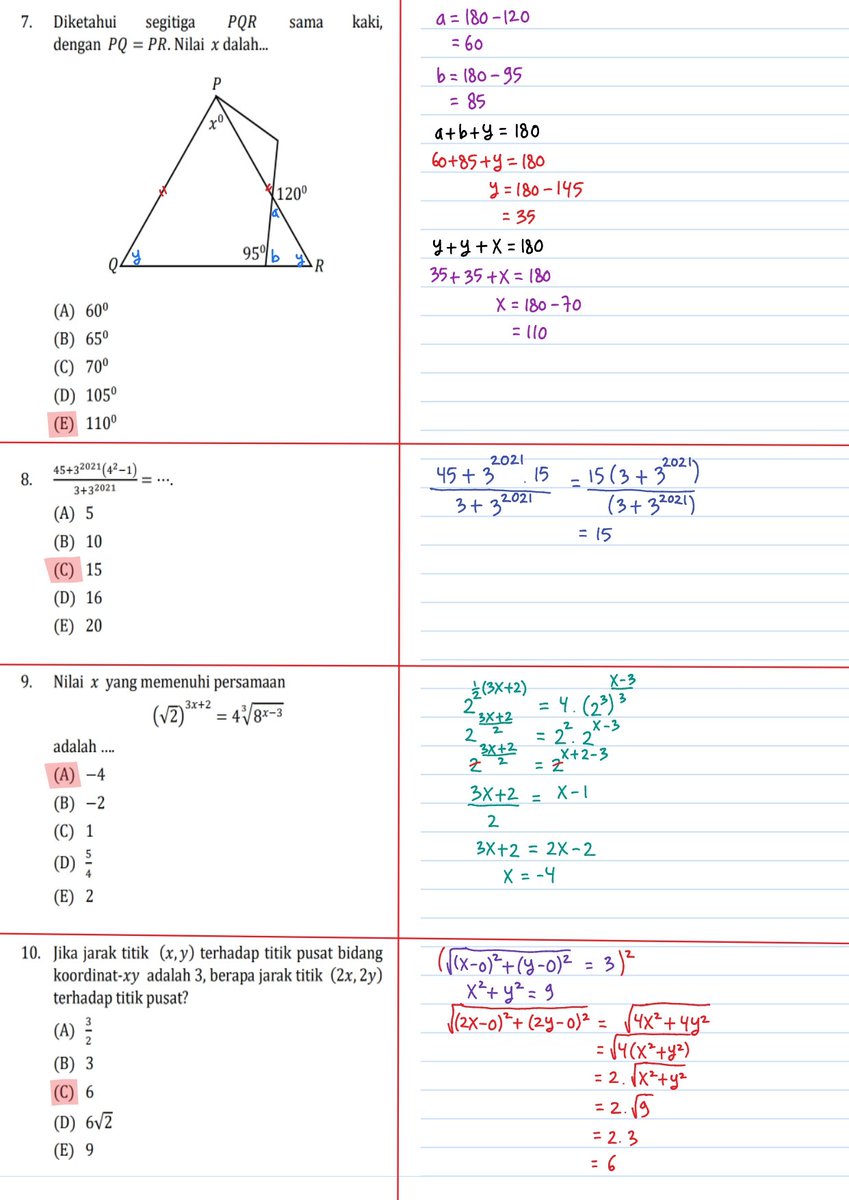 7. Diketahui segitiga PQR sama kaki,
dengan PQ = PR. Nilai x dalah...
P
x⁰
120⁰
a
95⁰
b
y
y
Q
R
(A) 60⁰
(B) 65⁰
(C) 70⁰
(D) 105⁰
(E) 110⁰
a = 180 - 120
= 60
b = 180 - 95
= 85
a + b + y = 180
60 + 85 + y = 180
y = 180 - 145
= 35
y + y + x = 180
35 + 35 + x = 180
x = 180 - 70
= 110
8. (45+3²⁰²¹(4²−1))/(3+3²⁰²¹) = ⋯.
(A) 5
(B) 10
(C) 15
(D) 16
(E) 20
(45 + 3²⁰²¹ . 15)/(3 + 3²⁰²¹) = 15(3 + 3²⁰²¹)/(3 + 3²⁰²¹)
= 15
9. Nilai x yang memenuhi persamaan
(√2)³ˣ⁺² = 4∛(8ˣ⁻³)
adalah ....
(A) −4
(B) −2
(C) 1
(D) 5/4
(E) 2
2^(½(3x+2)) = 4 . (2³)^((x-3)/3)
2^((3x+2)/2) = 2² . 2^(x-3)
2^((3x+2)/2) = 2^(x+2-3)
(3x+2)/2 = x - 1
3x + 2 = 2x - 2
x = -4
10. Jika jarak titik (x, y) terhadap titik pusat bidang
koordinat-xy adalah 3, berapa jarak titik (2x, 2y)
terhadap titik pusat?
(A) 3/2
(B) 3
(C) 6
(D) 6√2
(E) 9
(√((x-0)² + (y-0)²) = 3)²
x² + y² = 9
√((2x-0)² + (2y-0)²) = √(4x² + 4y²)
= √(4(x² + y²))
= 2 . √(x² + y²)
= 2 . √9
= 2 . 3
= 6